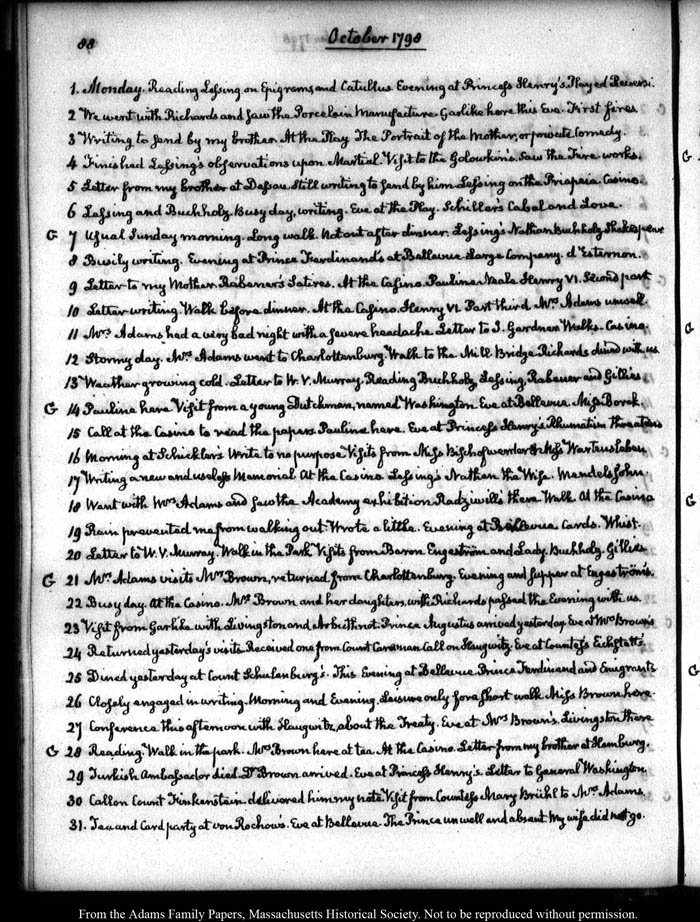 88
October 1798
1. Monday. Reading Lessing on Epigrams and Catullus Evening at Princess Henry's. Played Reversi.
2 We went with Richards and saw the Porcelain Manufacture. Garlike here this Eve. First fires
3 Writing to send by my brother. At the Play The Portrait of the Mother, or private Comedy.
4 Finished Lessing's observations upon Martial. Visit to the Golowkin's. Saw the Fire works.
5 Letter from my brother at Dessau. Still writing to send by him. Lessing on the Priapeia. Casino.
6 Lessing and Buchholz. Busy day, writing. Eve at the Play. Schiller's Cabal and Love.
G 7 Usual Sunday morning. Long walk. Not out after dinner. Lessing's Nathan Buchholz Shakespeare
8 Busily writing. Evening at Prince Ferdinand's at Bellevue Large Company. d'Esternon.
9 Letter to my Mother. Rabener's Satires. At the Casino. Pauline Neale Henry VI. Second part
10 Letter writing. Walk before dinner. At the Casino. Henry VI. Part third. Mrs Adams unwell.
11 Mrs Adams had a very bad night with a severe headache. Letter to S. Gardner Walks. Casino.
12 Stormy day. Mrs Adams went to Charlottenburg. Walk to the Mill Bridge. Richards dined with us
13 Weather growing cold. Letter to W. V. Murray. Reading Buchholz, Lessing, Rabener and Gillies
G 14 Pauline here Visit from a young Dutchman, named Washington. Eve at Bellevue. Miss Borck.
15 Call at the Casino to read the papers. Pauline here. Eve at Princess Henry's. Rhumatism threatens
16 Morning at Schickler's Write to no purpose Visits from Miss Bischofswerder & Miss Wartensleben
17 Writing a new and useless Memorial. At the Casino. Lessing's Nathan the Wise. Mendelsohn.
18 Went with Mrs Adams and saw the Academy exhibition Radziwills there. Walk. At the Casino
19 Rain prevented me from walking out. Wrote a little. Evening at Bellevue Cards. Whist.
20 Letter to W. V. Murray. Walk in the Park Visits from Baron Engeström and Lady. Buchholz. Gillies
G 21 Mrs Adams visits Mrs Brown, returned from Charlottenburg. Evening and supper at Engeström's.
22 Busy day. At the Casino. Mrs Brown and her daughters, with Richards passed the Evening with us.
23 Visit from Garlike with Livingston and Arbuthnot. Prince Augustus arrived yesterday. Eve at Mrs Brown's
24 Returned yesterday's visits. Received one from Count Caraman. Call on Haugwitz. Eve at Countess Eickstatt's
25 Dined yesterday at Count Schulenburg's. This Evening at Bellevue. Prince Ferdinand and Emigrants
26 Closely engaged in writing. Morning and Evening. Leisure only for a short walk. Miss Brown here
27 Conference this afternoon with Haugwitz about the Treaty. Eve at Mrs Brown's. Livingston there
G 28 Reading. Walk in the park. Mrs Brown here at tea. At the Casino. Letter from my brother at Hamburg.
29 Turkish Ambassador died. Dr Brown arrived. Eve at Princess Henry's. Letter to General Washington
30 Call on Count Finkenstein. delivered him my note. Visit from Countess Mary Brühl to Mrs Adams
31. Tea and Card party at von Rochow's. Eve at Bellevue. The Prince unwell and absent My wife did not go.
G
G
G
G
From the Adams Family Papers, Massachusetts Historical Society. Not to be reproduced without permission.